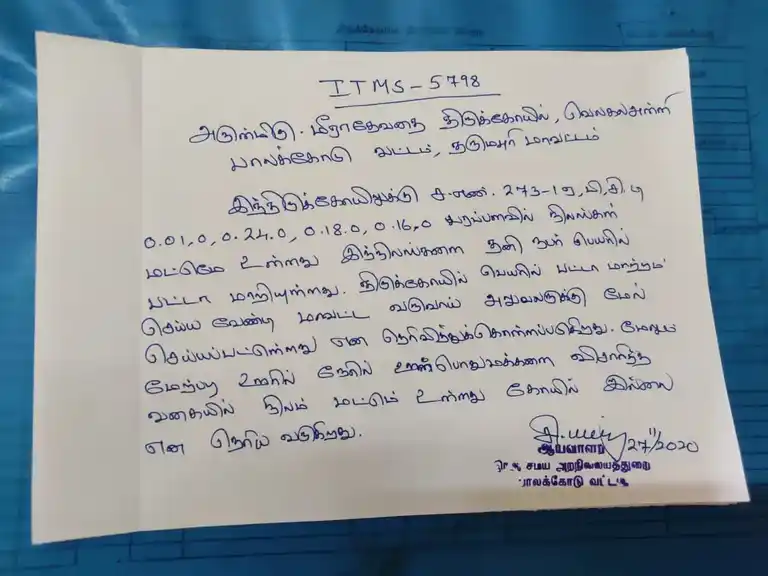 ITMS - 5798
அருள்மிகு. மீராதேவதை திருக்கோயில், வெலகலஅள்ளி
பாலக்கோடு வட்டம், தருமபுரி மாவட்டம்
இத்திருக்கோயிலுக்கு ச.எண். 273-1ஏ, பி, சி, டி
0.01,0, 0.24.0, 0.18.0, 0.16,0 பரப்பளவில் நிலங்கள்
மட்டுமே உள்ளது இந்நிலங்களை தனி நபர் பெயரில்
பட்டா மாறியுள்ளது. திருக்கோயில் பெயரில் பட்டா மாற்றம்
செய்ய வேண்டி மாவட்ட வருவாய் அலுவலருக்கு மேல்
செய்யப்பட்டுள்ளது என தெரிவித்துக்கொள்ளப்படுகிறது. மேலும்
மேற்படி ஊரில் நேரில் ஊர்பொதுமக்களை விசாரித்த
வகையில் நிலம் மட்டும் உள்ளது கோயில் இல்லை
என தெரிய வருகிறது.
27/11/2020
ஆய்வாளர்
சமய அறநிலையத்துறை
பாலக்கோடு வட்டம்